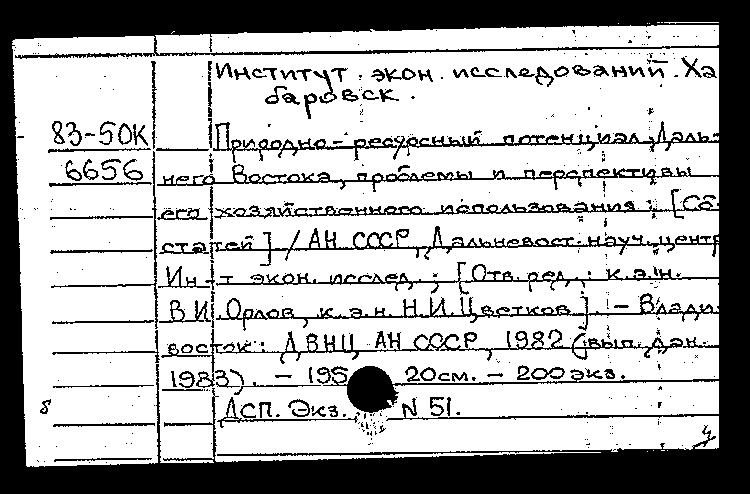 Институт экон. исследований. Ха
баровск.
83-5ОК Природно-ресурсный потенциал Даль-
6656 него Востока, проблемы и перспективы
его хозяйственного использования: [Сб.
статей] / АН СССР, Дальневост. науч. центр
Ин-т экон. исслед. ; [Отв. ред.: к.э.н.
В.И. Орлов, к.э.н. Н.И. Цветков]. - Влади-
восток: ДВНЦ АН СССР, 1982 (вып. дан.
1983). - 195 20см. - 200 экз.
8 ДСП. Экз. N 51.